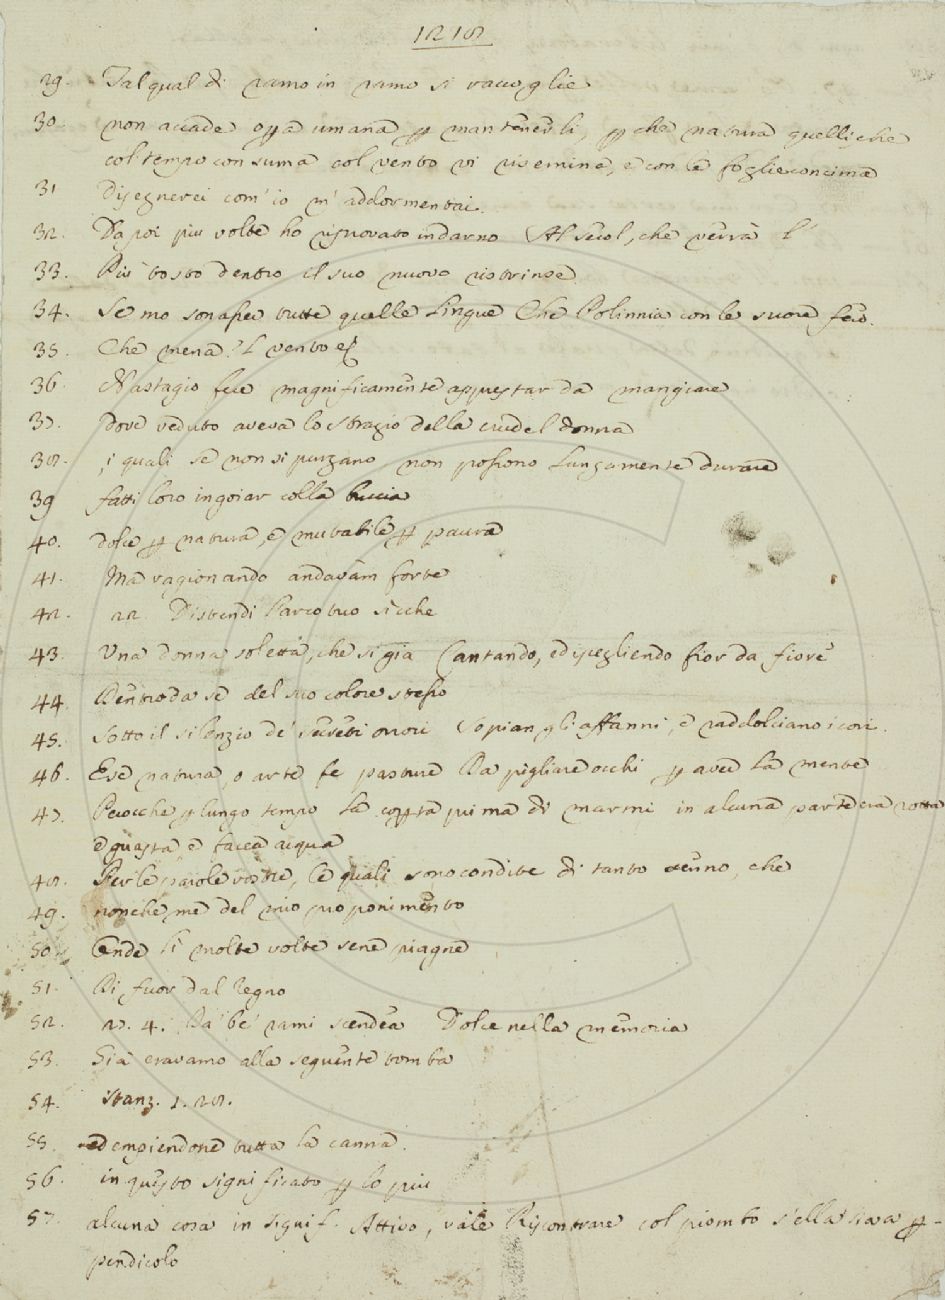 1218
29. Tal qual di ramo in ramo si raccoglie
30. non accade opa umana p mantenerli, p che natura quelli che
col tempo consuma col vento vi risemina, e con le foglie concima
31 Disegnerei com' io m' addormentai.
32. Da poi più volte ho riprovato indarno Al secol, che verrà l'
33. Più tosto dentro il suo nuovo ristrinse
34. Se mo sonasser tutte quelle lingue Che Polinnia con le suore fero.
35. Che mena 'l vento e
36. Nastagio fece magnificamente apprestar da mangiare
37. Dove veduto aveva lo strazio della crudel donna
38. i quali se non si purgano non possono lungamente durare
39 fatti loro ingoiar colla buccia
40. dolce p natura, e mutabile p paura
41. Ma ragionando andavam forte
42. 22 Distendi l'arco tuo sicche
43. Una donna soletta, che si gia Cantando, ed iscegliendo fior da fiore
44. Dentro da se del suo colore stesso
45. Sotto il silenzio de' secreti orrori Sopian gli affanni, e raddolciano i cori.
46. E se natura, o arte fe pasture Da pigliare occhi p aver la mente
47. Perocche p lungo tempo la copta prima di marmi in alcuna parte era rotta
e guasta e facea acqua
48. Per le parole vostre, le quali sono condite di tanto senno, che
49. nonche me del mio proponimento
50. Onde li molte volte sene piagne
51. Di fuor dal regno
52. 27. 4. Da' be' rami scendea Dolce nella memoria
53. Già eravamo alla seguente tomba
54. Stanz. 1. 28.
55. ed empiendone tutta la canna.
56. in questo significato p lo più
57. alcuna cosa in signif. Attivo, vale Riscontrare col piombo s'ella sia a p-
pendicolo